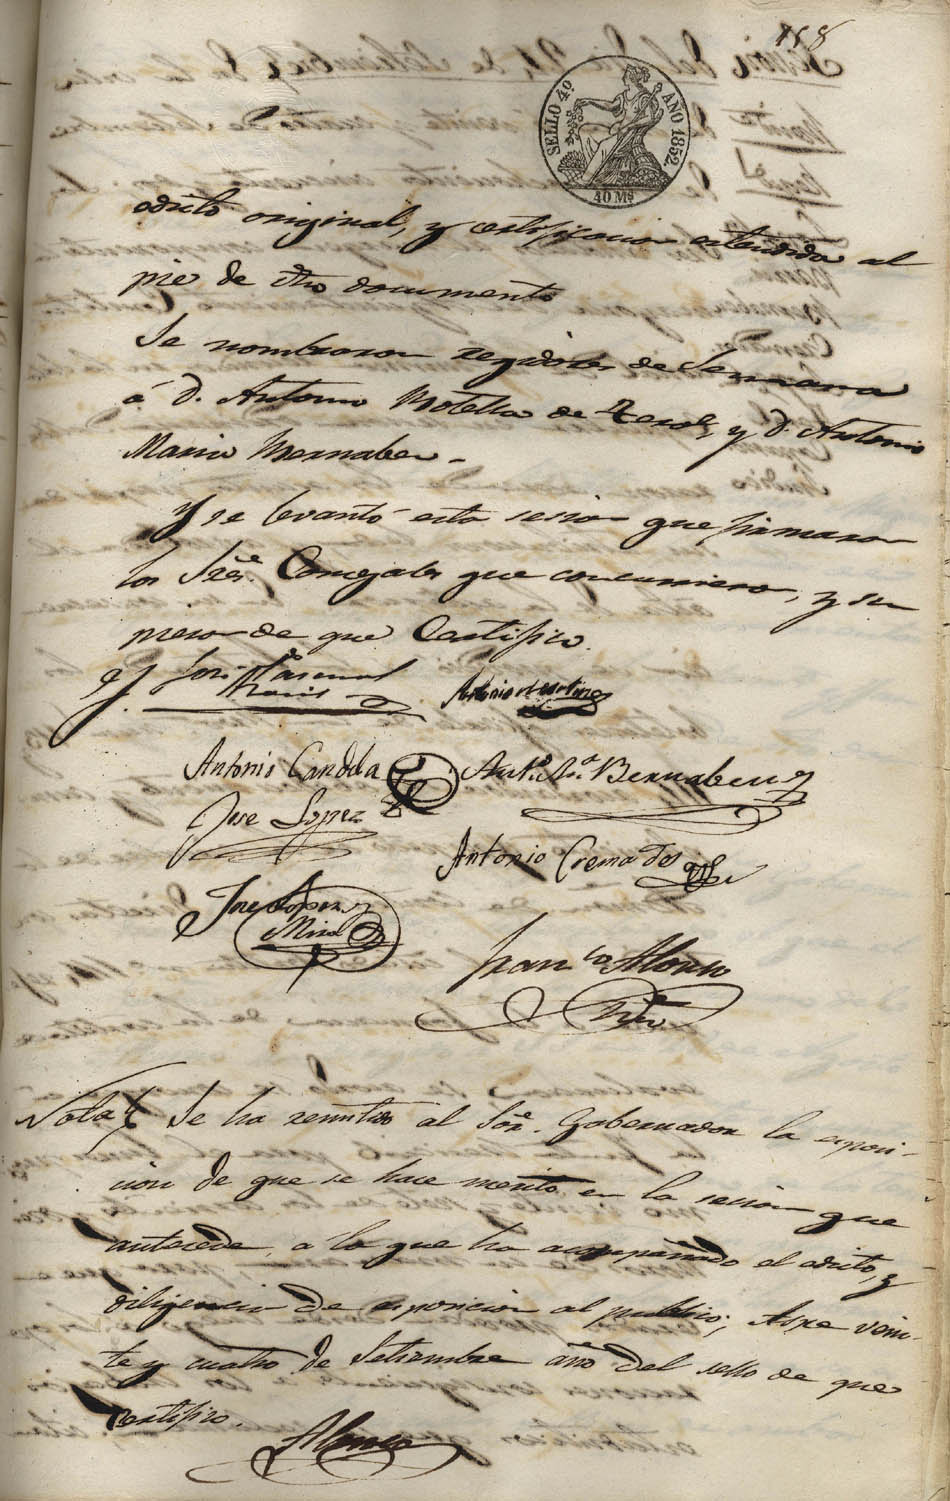 158
SELLO 4º AÑO 1852.
40 Mˢ
edicto original, y certificacion estendida al
pie de dho documento
Se nombraron regidores de Semana
á D. Antonio Botella de, y D. Antonio
Maria Bernabeu.
Y se levantó esta sesion que firmaron
los Sres. Concejales que concurrieron, y su
pieron de que Certifico.
José Pascual
Antonio Martinez
Antonio Candela
Antº. Mª. Bernabeu
Jose Lopez
Antonio Cremades
Jose Lopez
Mira
Franco Alonso
Srio
Nota Se ha remitido al Sor. Gobernador la esposi-
cion de que se hace merito en la sesion que
antecede, a la que ha acompañado el edicto, y
diligencia de esposicion al publico; Aspe vein-
te y cuatro de Setiembre año del sello de que
certifico.
Alonso